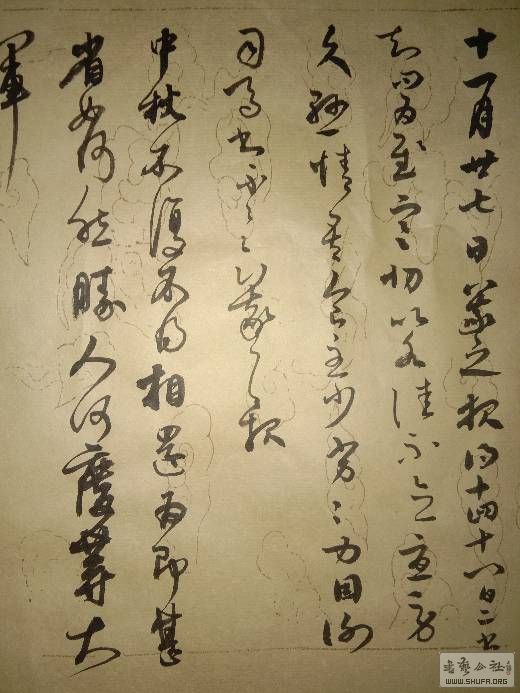 十一月廿七日羲之報得十四十八日二書
知問為慰寒切比各佳不念憂勞
久懸情吾食至少劣劣力因謝
司馬書不一一羲之報
中秋不復不得相還為即甚
省如何然勝人何慶等大
軍
書藝公社
WWW.SHUFA.ORG